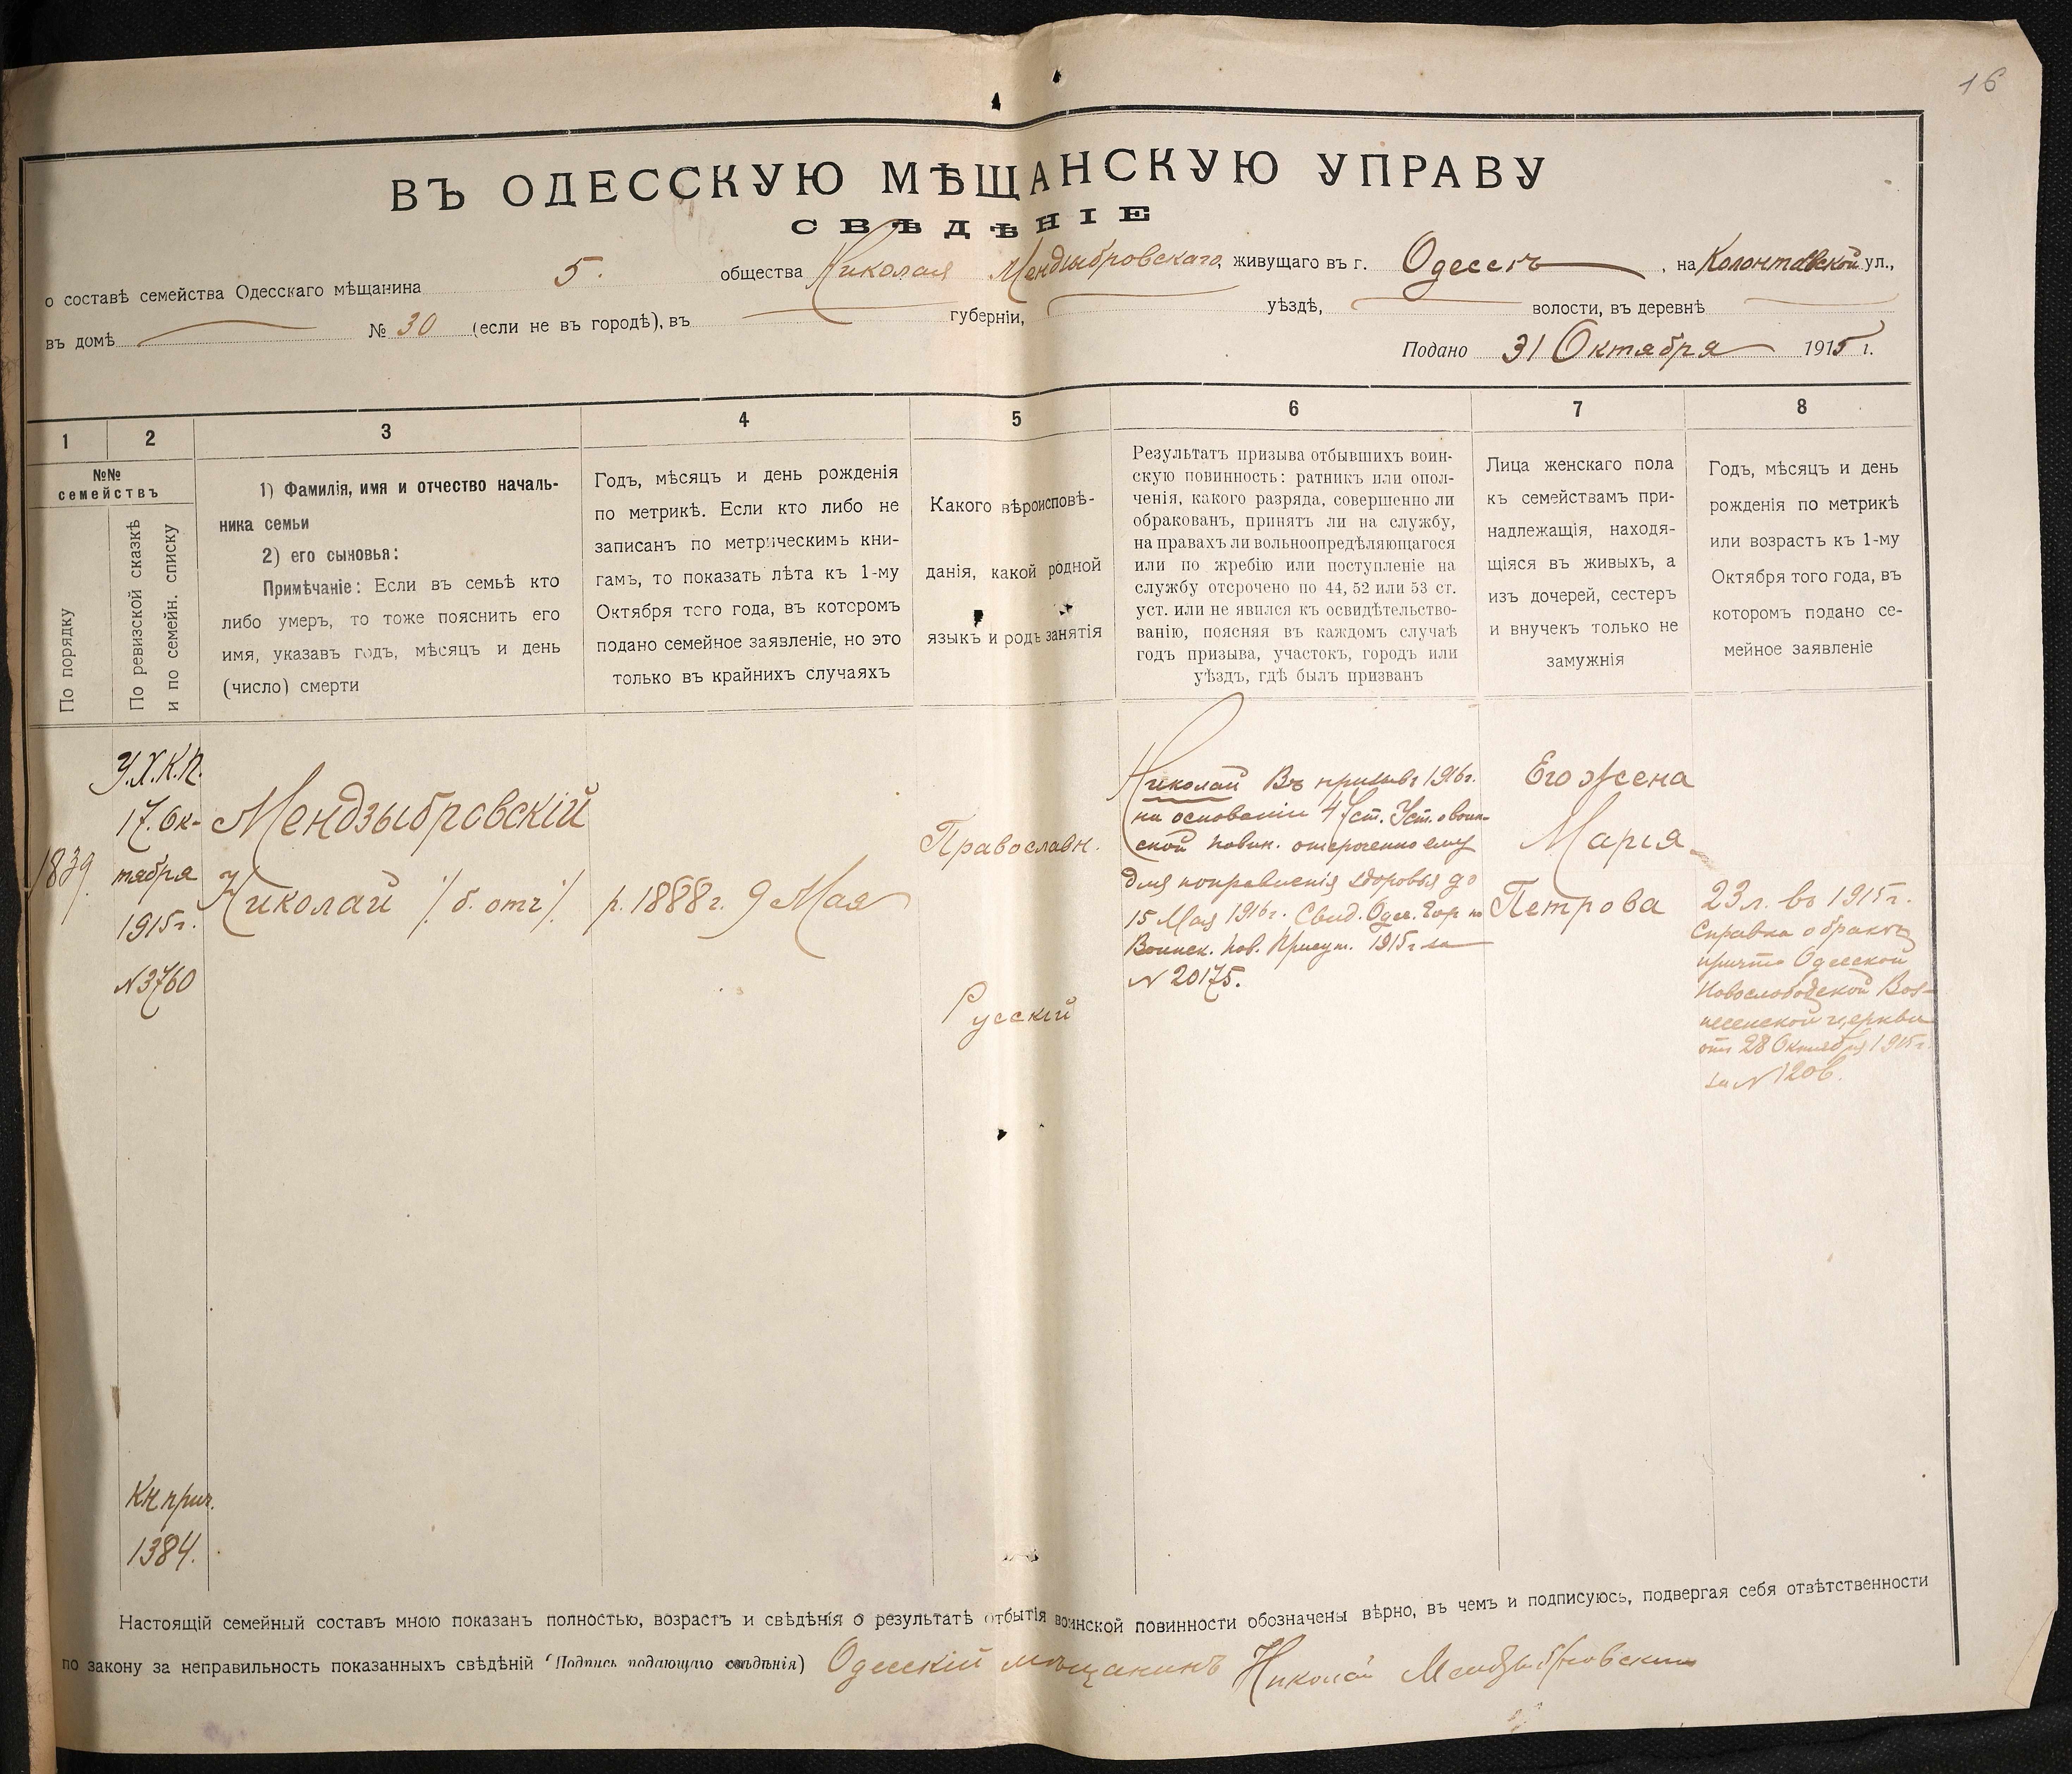 16
ВЪ ОДЕССКУЮ МѢЩАНСКУЮ УПРАВУ
СВѢДѢНІЕ
о составѣ семейства Одесскаго мѣщанина 5. общества Николая Мендзыбровскаго, живущаго въ г. Одессѣ, на Колонтаевской ул.,
въ домѣ № 30 (если не въ городѣ), въ губерніи, уѣздѣ, волости, въ деревнѣ
Подано 31 Октября 1915 г.
1
2
3
4
5
6
7
8
№№
семействъ
По порядку
По ревизской сказкѣ
и по семейн. списку
1) Фамилія, имя и отчество началь-
ника семьи
2) его сыновья:
Примѣчаніе: Если въ семьѣ кто
либо умеръ, то тоже пояснить его
имя, указавъ годъ, мѣсяцъ и день
(число) смерти
Годъ, мѣсяцъ и день рожденія
по метрикѣ. Если кто либо не
записанъ по метрическимъ кни-
гамъ, то показать лѣта къ 1-му
Октября того года, въ которомъ
подано семейное заявленіе, но это
только въ крайнихъ случаяхъ
Какого вѣроисповѣ-
данія, какой родной
языкъ и родъ занятія
Результатъ призыва отбывшихъ воин-
скую повинность: ратникъ или опол-
ченія, какого разряда, совершенно ли
обракованъ, принятъ ли на службу,
на правахъ ли вольноопредѣляющагося
или по жребію или поступленіе на
службу отсрочено по 44, 52 или 53 ст.
уст. или не явился къ освидѣтельство-
ванію, поясняя въ каждомъ случаѣ
годъ призыва, участокъ, городъ или
уѣздъ, гдѣ былъ призванъ
Лица женскаго пола
къ семействамъ при-
надлежащія, находя-
щіяся въ живыхъ, а
изъ дочерей, сестеръ
и внучекъ только не
замужнія
Годъ, мѣсяцъ и день
рожденія по метрикѣ
или возрастъ къ 1-му
Октября того года, въ
которомъ подано се-
мейное заявленіе
1839.
У.Х.К.П.
17. Ок-
тября
1915 г.
№ 3760
Мендзыбровскій
Николай /б. отч/.
р. 1888 г. 9 Мая
Православн.
Русскій
Николай Въ призывѣ 1916 г.
на основаніи 47 ст. Уст. о воин-
ской повин. отсроченно ему
для поправленія здоровья до
15 Мая 1916 г. Свид. Одес. Гор. по
Воинск. пов. Присут. 1915 г. за
№ 20175.
Его жена
Марія
Петрова
23 л. въ 1915 г.
Справка о бракѣ
причта Одесской
Новослободской Воз-
несенской церкви
отъ 28 Октября 1915 г.
за № 1206.
Кн. прич.
1384.
Настоящій семейный составъ мною показанъ полностью, возрастъ и свѣдѣнія о результатѣ отбытія воинской повинности обозначены вѣрно, въ чемъ и подписуюсь, подвергая себя отвѣтственности
по закону за неправильность показанныхъ свѣдѣній (Подпись подающаго свѣдѣнія) Одесскій мѣщанинъ Николай Мендзыбровскій